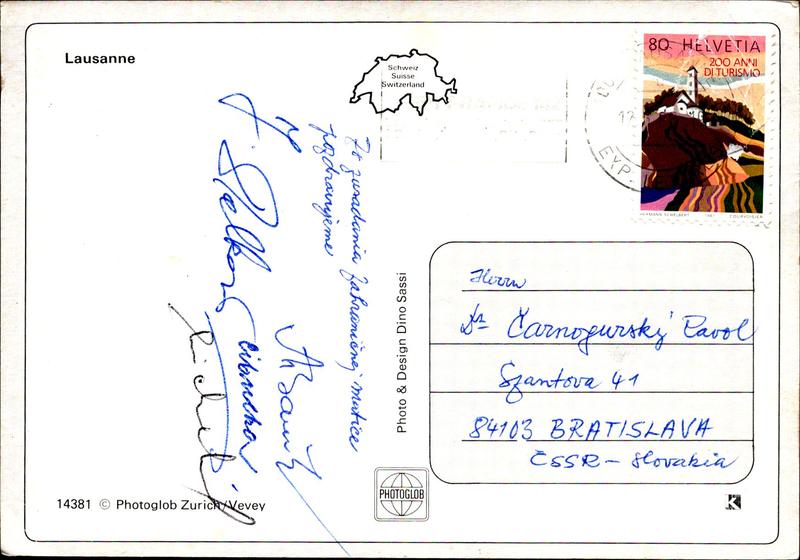 Lausanne
Schweiz
Suisse
Switzerland
80 HELVETIA
200 ANNI
DI TURISMO
HERMANN SCHELBERT 1987 COURVOISIER
EXP.
Zo zasadania Zahraničnej matice
pozdravujeme
Photo & Design Dino Sassi
Herrn
Dr Čarnogurský Pavol
Szantova 41
84103 BRATISLAVA
ČSSR - Slovakia
PHOTOGLOB
K
14381 © Photoglob Zurich/Vevey